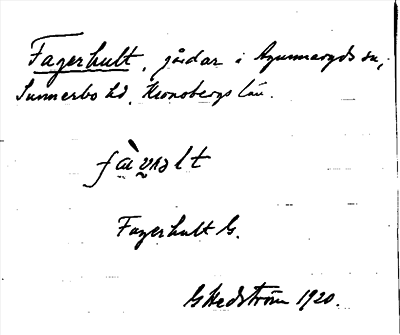 Fagerhult, gårdar i Agunnaryds sn,
Sunnerbo hd, Kronobergs län.
Fagerhult G.
G Hedström 1920.